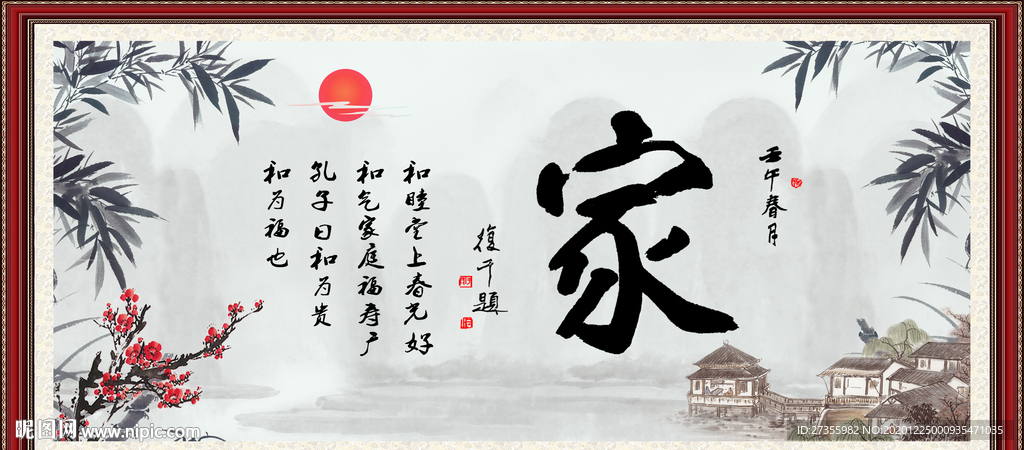 壬午春月
家
復平題
和睦堂上春光好
和气家庭福寿广
孔子曰和为贵
和为福也
昵图网 www.nipic.com
ID:27355982 NO:20201225000935471035